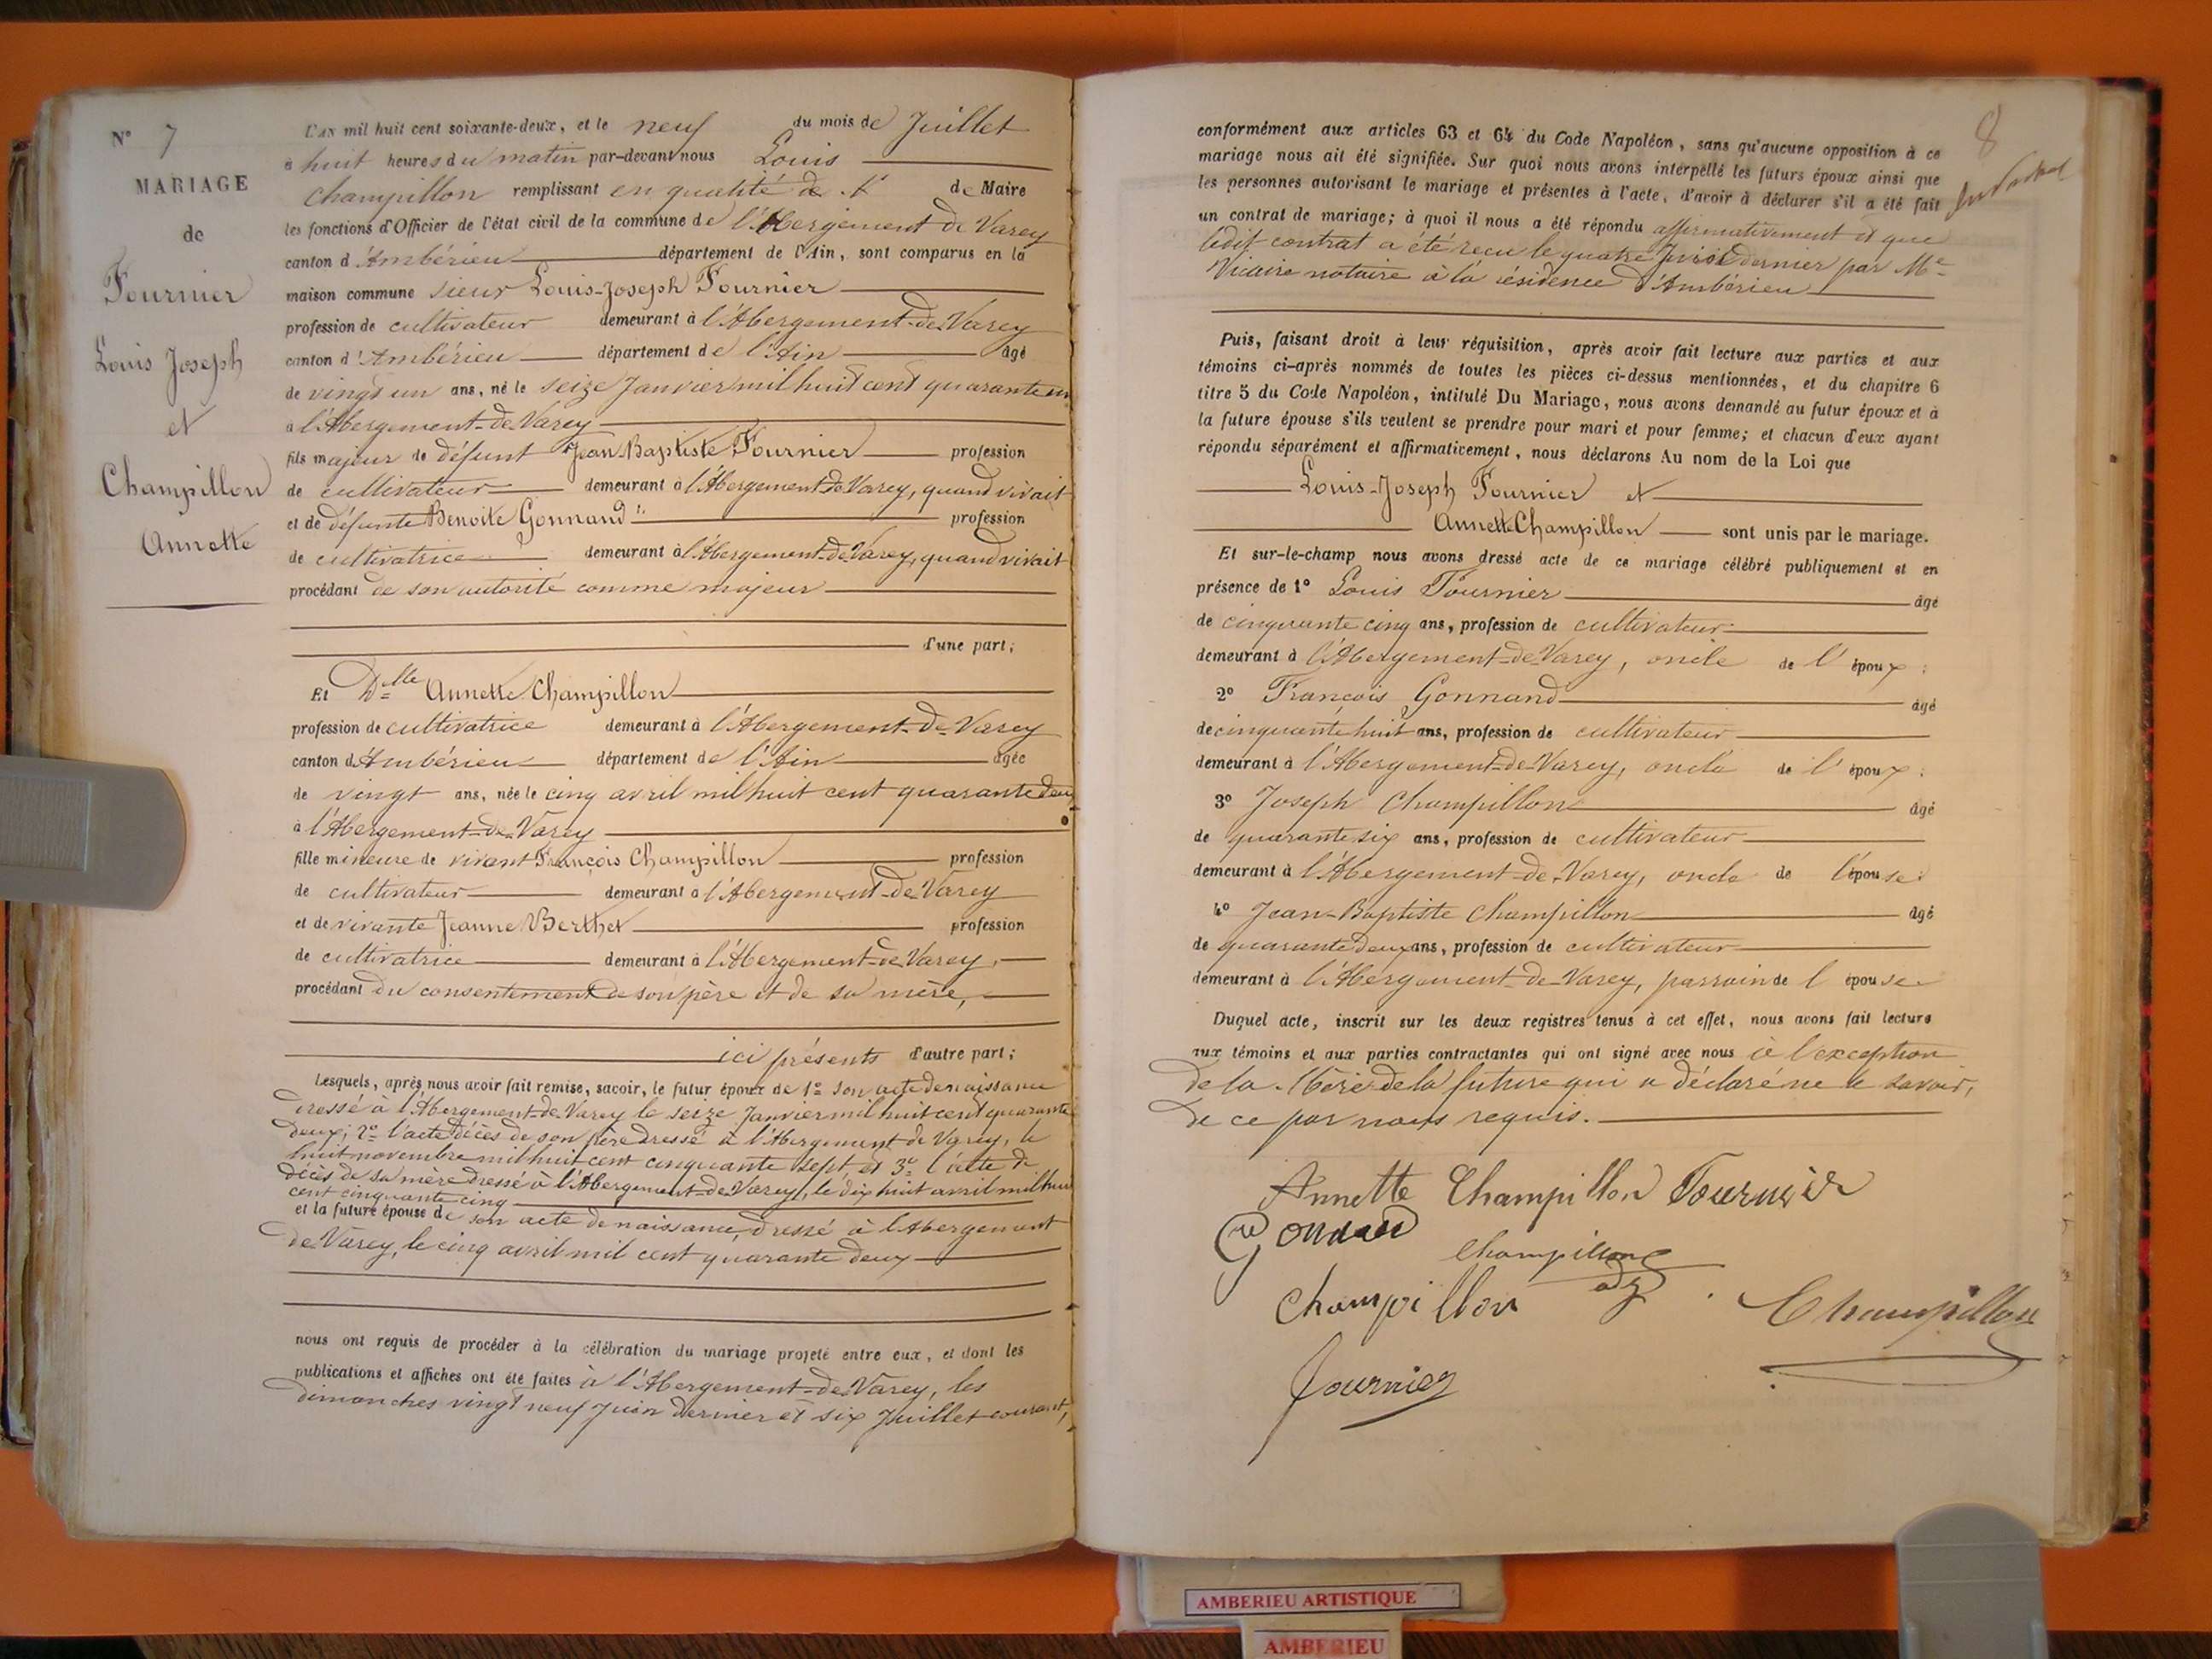 N° 7
MARIAGE
de
Fournier
Louis Joseph
et
Champillon
Annette
L'an mil huit cent soixante-deux, et le neuf du mois de Juillet
à huit heures du matin par-devant nous Louis
Champillon remplissant en qualité de de Maire
les fonctions d'Officier de l'état civil de la commune de l'Abergement de Varey
canton d'Ambérieu département de l'Ain, sont comparus en la
maison commune sieur Louis-Joseph Fournier
profession de cultivateur demeurant à l'Abergement-de-Varey
canton d'Ambérieu département de l'Ain âgé
de vingt un ans, né le seize Janvier mil huit cent quarante un
à l'Abergement-de-Varey
fils majeur de défunt Jean Baptiste Fournier profession
de cultivateur demeurant à l'Abergement de Varey, quand vivait
et de défunte Benoite Gonnand profession
de cultivatrice demeurant à l'Abergement-de-Varey, quand vivait
procédant de son autorité comme majeur
d'une part;
Et Dlle Annette Champillon
profession de cultivatrice demeurant à l'Abergement-de-Varey
canton d'Ambérieu département de l'Ain âgée
de vingt ans, née le cinq avril mil huit cent quarante deux
à l'Abergement-de-Varey
fille mineure de vivant François Champillon profession
de cultivateur demeurant à l'Abergement-de-Varey
et de vivante Jeanne Berthet profession
de cultivatrice demeurant à l'Abergement-de-Varey,
procédant du consentement de son père et de sa mère,
ici présents d'autre part;
Lesquels, après nous avoir fait remise, savoir, le futur époux de 1° son acte de naissance
dressé à l'Abergement-de-Varey le seize Janvier mil huit cent quarante
deux; 2° l'acte décès de son père dressé à l'Abergement de Varey, le
huit novembre mil huit cent cinquante sept, et 3° l'acte de
décès de sa mère dressé à l'Abergement-de-Varey, le dix huit avril mil huit
cent cinquante cinq
et la future épouse de son acte de naissance, dressé à l'Abergement
de Varey, le cinq avril mil cent quarante deux
nous ont requis de procéder à la célébration du mariage projeté entre eux, et dont les
publications et affiches ont été faites à l'Abergement-de-Varey, les
dimanches vingt neuf Juin dernier et six Juillet courant,
8
conformément aux articles 63 et 64 du Code Napoléon, sans qu'aucune opposition à ce
mariage nous ait été signifiée. Sur quoi nous avons interpellé les futurs époux ainsi que
les personnes autorisant le mariage et présentes à l'acte, d'avoir à déclarer s'il a été fait
un contrat de mariage; à quoi il nous a été répondu affirmativement et que
ledit contrat a été reçu le quatre dernier par Me
Vicaire notaire à la résidence d'Ambérieu
Puis, faisant droit à leur réquisition, après avoir fait lecture aux parties et aux
témoins ci-après nommés de toutes les pièces ci-dessus mentionnées, et du chapitre 6
titre 5 du Code Napoléon, intitulé Du Mariage, nous avons demandé au futur époux et à
la future épouse s'ils veulent se prendre pour mari et pour femme; et chacun d'eux ayant
répondu séparément et affirmativement, nous déclarons Au nom de la Loi que
Louis-Joseph Fournier et
Annette Champillon sont unis par le mariage.
Et sur-le-champ nous avons dressé acte de ce mariage célébré publiquement et en
présence de 1° Louis Fournier âgé
de cinquante cinq ans, profession de cultivateur
demeurant à l'Abergement-de-Varey, oncle de l'époux;
2° François Gonnand âgé
de cinquante huit ans, profession de cultivateur
demeurant à l'Abergement-de-Varey, oncle de l'époux;
3° Joseph Champillon âgé
de quarante six ans, profession de cultivateur
demeurant à l'Abergement-de-Varey, oncle de l'épouse;
4° Jean-Baptiste Champillon âgé
de quarante deux ans, profession de cultivateur
demeurant à l'Abergement-de-Varey, parrain de l'épouse
Duquel acte, inscrit sur les deux registres tenus à cet effet, nous avons fait lecture
aux témoins et aux parties contractantes qui ont signé avec nous à l'exception
de la Mère de la future qui a déclaré ne le savoir,
de ce par nous requis.
Annette Champillon Fournier
Champillon
Champillon Champillon
Fournier
AMBERIEU ARTISTIQUE
AMBERIEU